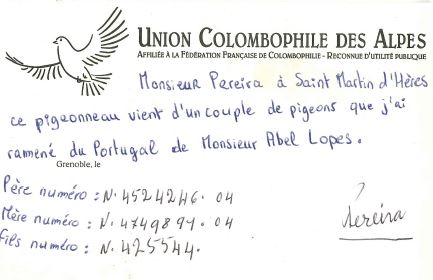 UNION COLOMBOPHILE DES ALPES
AFFILIÉE À LA FÉDÉRATION FRANÇAISE DE COLOMBOPHILIE - RECONNUE D'UTILITÉ PUBLIQUE
Monsieur Pereira à Saint Martin d'Hères
ce pigeonneau vient d'un couple de pigeons que j'ai
ramené du Portugal de Monsieur Abel Lopes.
Grenoble, le
Père numéro : N. 4524246. 04
Mère numéro : N. 4749891. 04
fils numéro : N. 425544.
Pereira